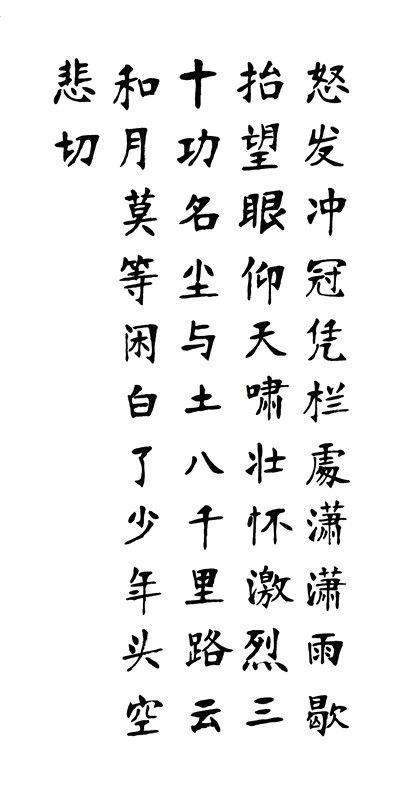 怒发冲冠凭栏處潇潇雨歇
抬望眼仰天啸壮怀激烈三
十功名尘与土八千里路云
和月莫等闲白了少年头空
悲切